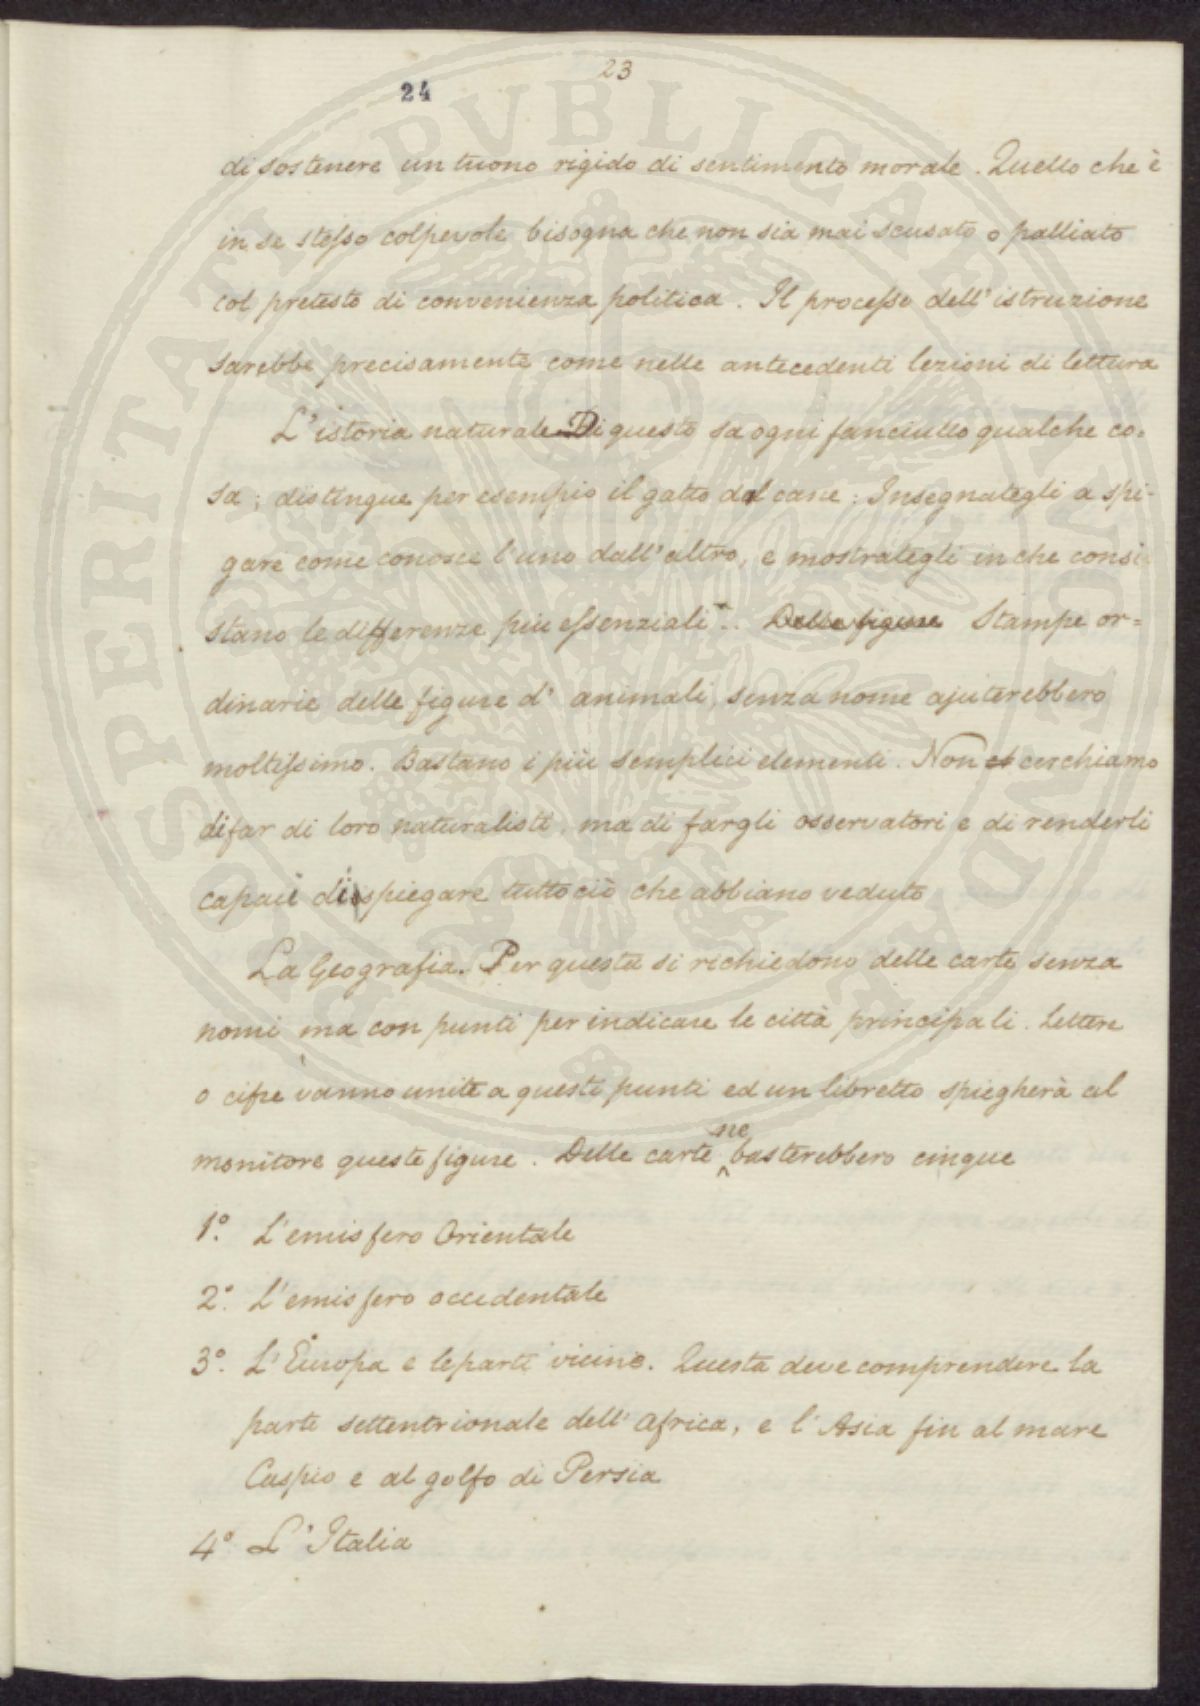 23
24
di sostenere un tuono rigido di sentimento morale. Quello che è
in se stesso colpevole bisogna che non sia mai scusato o palliato
col pretesto di convenienza politica. Il processo dell'istruzione
sarebbe precisamente come nelle antecedenti lezioni di lettura
L'istoria naturale Di questo sa ogni fanciullo qualche co=
sa; distingue per esempio il gatto dal cane; Insegnategli a spi-
gare come conosce l'uno dall'altro, e mostrategli in che consi-
stano le differenze più essenziali. Delle figure Stampe or=
dinarie delle figure d'animali, senza nome ajuterebbero
moltissimo. Bastano i più semplici elementi. Non cerchiamo
di far di loro naturalisti, ma di fargli osservatori e di renderli
capaci di spiegare tutto ciò che abbiano veduto
La Geografia. Per questa si richiedono delle carte senza
nomi ma con punti per indicare le città principali. Lettere
o cifre vanno unite a questi punti ed un libretto spiegherà al
monitore queste figure. Delle carte ne basterebbero cinque
1º. L'emisfero Orientale
2º. L'emisfero occidentale
3º. L'Europa e le parti vicine. Questa deve comprendere la
parte settentrionale dell'Africa, e l'Asia fin al mare
Caspio e al golfo di Persia
4º L'Italia
PROSPERITATI PVBLICAE AVGENDAE